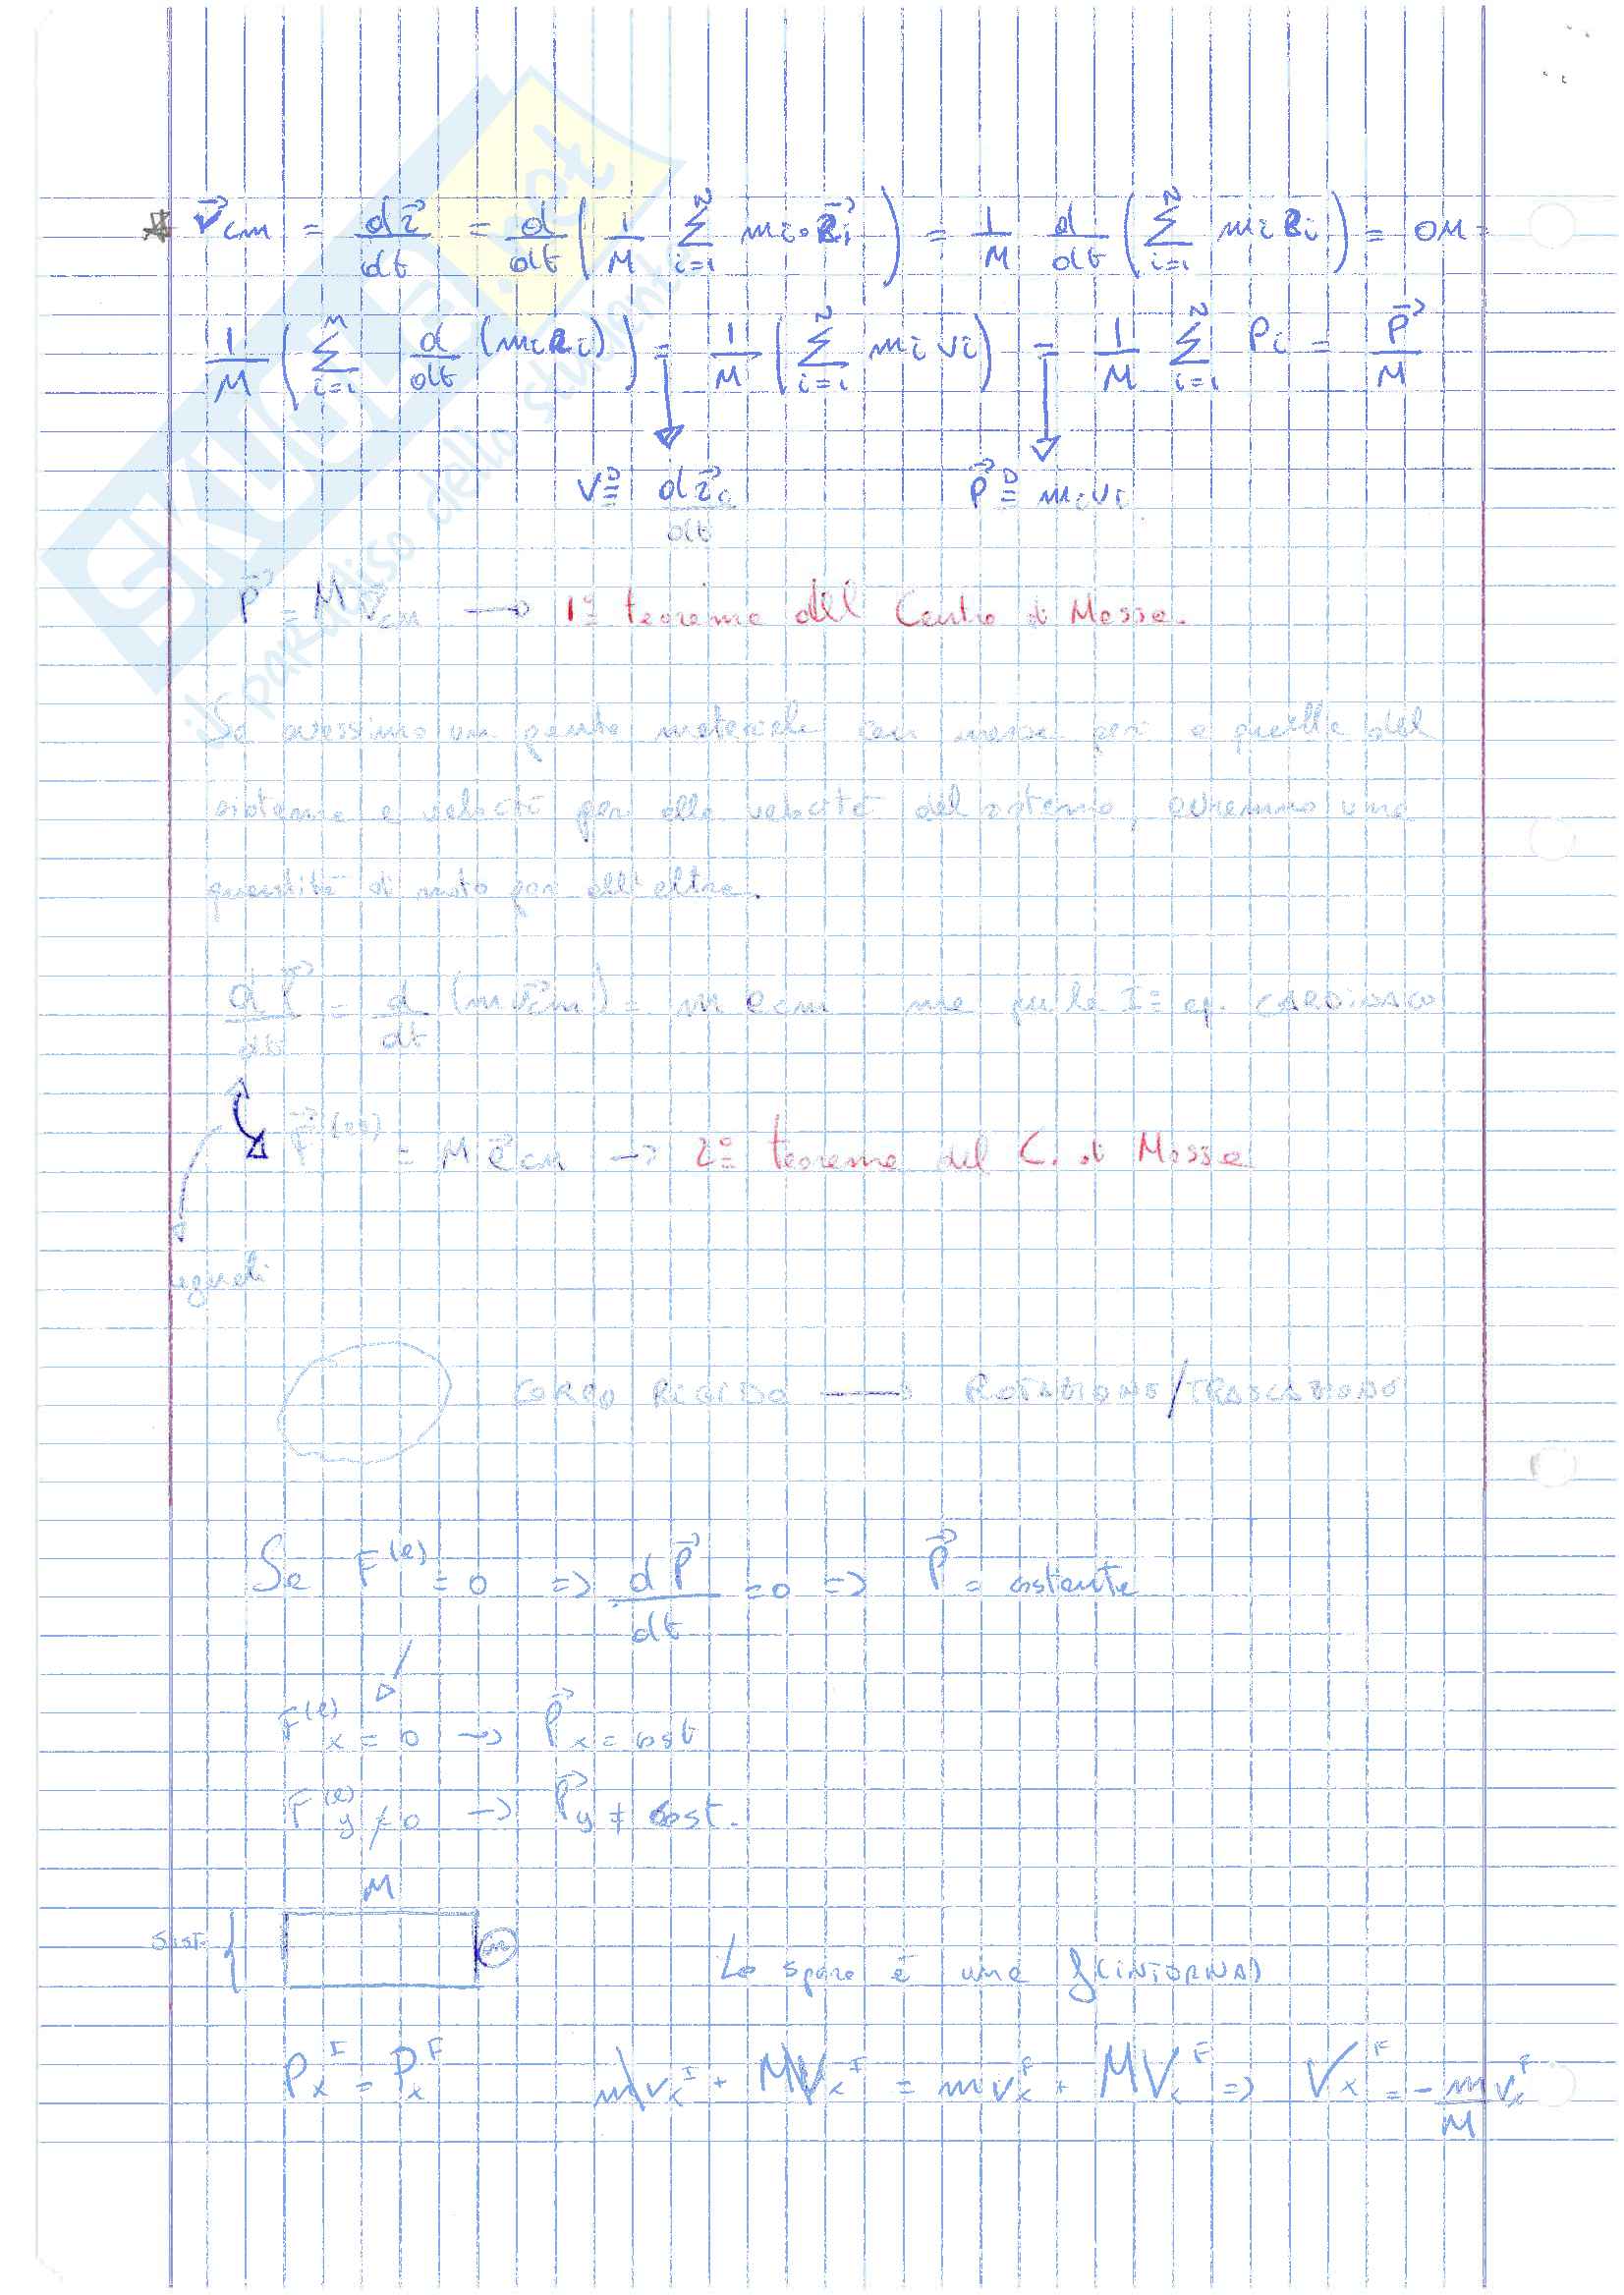 V⃗cm = dr⃗/dt = d/dt (1/M Σ_{i=1}^{n} mi · r⃗i) = 1/M d/dt (Σ_{i=1}^{n} mi ri) =
1/M (Σ_{i=1}^{n} d/dt (mi ri)) = 1/M (Σ_{i=1}^{n} mi vi) = 1/M Σ_{i=1}^{n} Pi = P⃗/M
V ≡ dr⃗/dt P⃗ ≡ mi vi
P⃗ = M v⃗cm → 1° teorema del Centro di Massa.
Se avessimo un punto materiale con massa pari a quella del
sistema e velocità pari alla velocità del sistema, avremmo una
quantità di moto pari all'altra.
dP⃗/dt = d/dt (m v⃗cm) = m acm ma per la I° eq. CARDINALE
F⃗(es) = M a⃗cm → 2° teorema del C. di Massa
uguali
CORPO RIGIDO → ROTAZIONE/TRASLAZIONE
Se F(e) = 0 => dP⃗/dt = 0 => P⃗ = costante
F(e)x = 0 → P⃗x = cost
F(e)y ≠ 0 → P⃗y ≠ cost.
M
SIST. { m
Lo sparo è una f(INTERNA)
Px^I = Px^F m vx^I + M Vx^I = m vx^F + M Vx^F => Vx^F = - m/M vx^F
SKUOLA.net
il paradiso dello studente